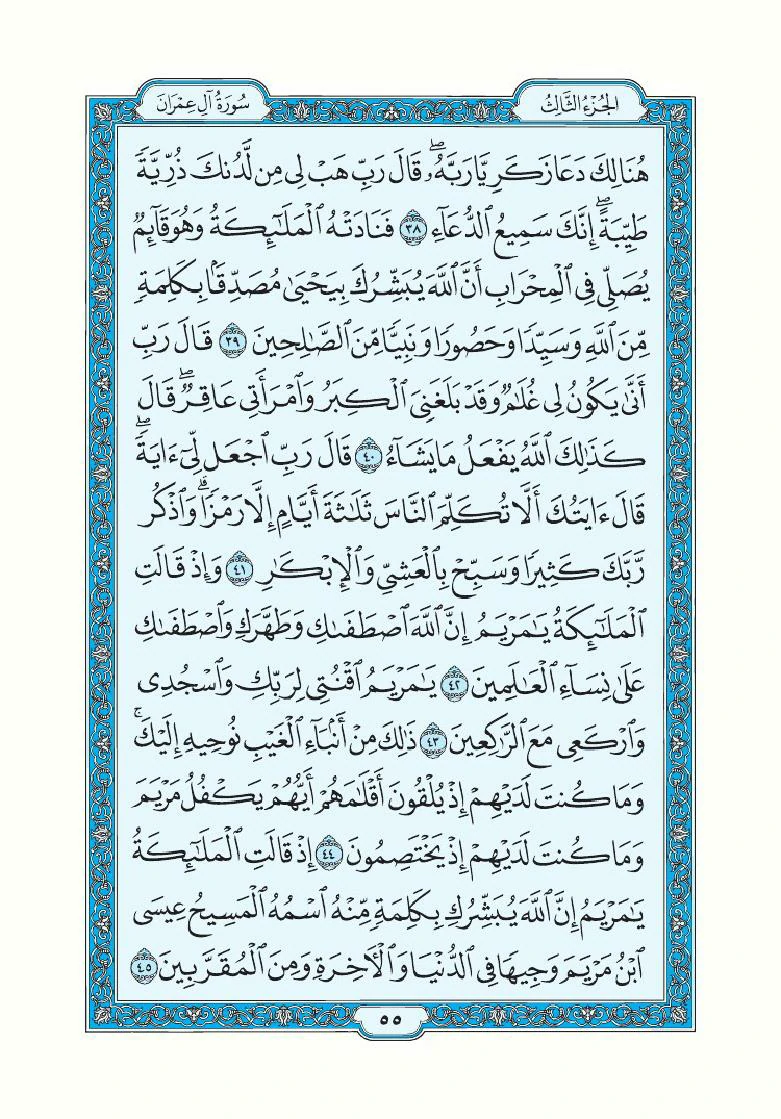 الجُزْءُ الثَّالِثُ
سُورَةُ آلِ عِمْرَانَ
هُنَالِكَ دَعَا زَكَرِيَّا رَبَّهُۥۖ قَالَ رَبِّ هَبۡ لِي مِن لَّدُنكَ ذُرِّيَّةٗ
طَيِّبَةًۖ إِنَّكَ سَمِيعُ ٱلدُّعَآءِ ٣٨ فَنَادَتۡهُ ٱلۡمَلَٰٓئِكَةُ وَهُوَ قَآئِمٞ
يُصَلِّي فِي ٱلۡمِحۡرَابِ أَنَّ ٱللَّهَ يُبَشِّرُكَ بِيَحۡيَىٰ مُصَدِّقَۢا بِكَلِمَةٖ
مِّنَ ٱللَّهِ وَسَيِّدٗا وَحَصُورٗا وَنَبِيّٗا مِّنَ ٱلصَّٰلِحِينَ ٣٩ قَالَ رَبِّ
أَنَّىٰ يَكُونُ لِي غُلَٰمٞ وَقَدۡ بَلَغَنِيَ ٱلۡكِبَرُ وَٱمۡرَأَتِي عَاقِرٞۖ قَالَ
كَذَٰلِكَ ٱللَّهُ يَفۡعَلُ مَا يَشَآءُ ٤٠ قَالَ رَبِّ ٱجۡعَل لِّيٓ ءَايَةٗۖ
قَالَ ءَايَتُكَ أَلَّا تُكَلِّمَ ٱلنَّاسَ ثَلَٰثَةَ أَيَّامٍ إِلَّا رَمۡزٗاۗ وَٱذۡكُر
رَّبَّكَ كَثِيرٗا وَسَبِّحۡ بِٱلۡعَشِيِّ وَٱلۡإِبۡكَٰرِ ٤١ وَإِذۡ قَالَتِ
ٱلۡمَلَٰٓئِكَةُ يَٰمَرۡيَمُ إِنَّ ٱللَّهَ ٱصۡطَفَىٰكِ وَطَهَّرَكِ وَٱصۡطَفَىٰكِ
عَلَىٰ نِسَآءِ ٱلۡعَٰلَمِينَ ٤٢ يَٰمَرۡيَمُ ٱقۡنُتِي لِرَبِّكِ وَٱسۡجُدِي
وَٱرۡكَعِي مَعَ ٱلرَّٰكِعِينَ ٤٣ ذَٰلِكَ مِنۡ أَنۢبَآءِ ٱلۡغَيۡبِ نُوحِيهِ إِلَيۡكَۚ
وَمَا كُنتَ لَدَيۡهِمۡ إِذۡ يُلۡقُونَ أَقۡلَٰمَهُمۡ أَيُّهُمۡ يَكۡفُلُ مَرۡيَمَ
وَمَا كُنتَ لَدَيۡهِمۡ إِذۡ يَخۡتَصِمُونَ ٤٤ إِذۡ قَالَتِ ٱلۡمَلَٰٓئِكَةُ
يَٰمَرۡيَمُ إِنَّ ٱللَّهَ يُبَشِّرُكِ بِكَلِمَةٖ مِّنۡهُ ٱسۡمُهُ ٱلۡمَسِيحُ عِيسَى
ٱبۡنُ مَرۡيَمَ وَجِيهٗا فِي ٱلدُّنۡيَا وَٱلۡأٓخِرَةِ وَمِنَ ٱلۡمُقَرَّبِينَ ٤٥
٥٥